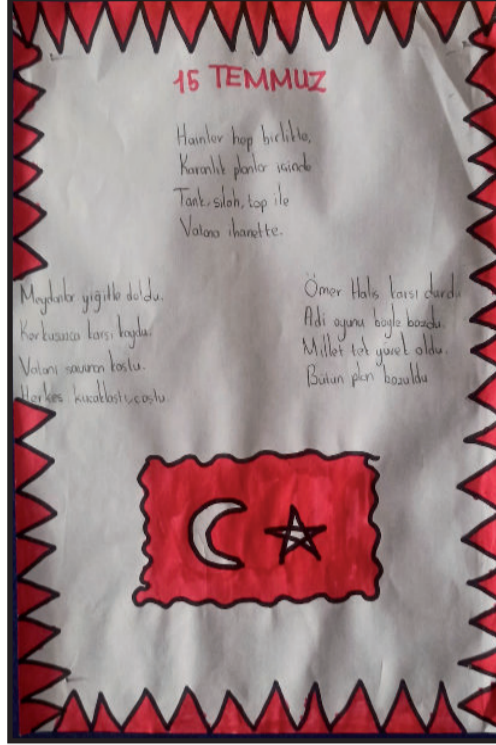 15 TEMMUZ
Hainler hep birlikte,
Karanlık planlar içinde
Tank, silah, top ile
Vatana ihanette.
Meydanlar yiğitle doldu.
Korkusuzca karşı koydu.
Vatanı savunan koştu.
Herkes kucaklaştı, coştu.
Ömer Halis karşı durdu
Adi oyunu böyle bozdu.
Millet tek yürek oldu.
Bütün plan bozuldu